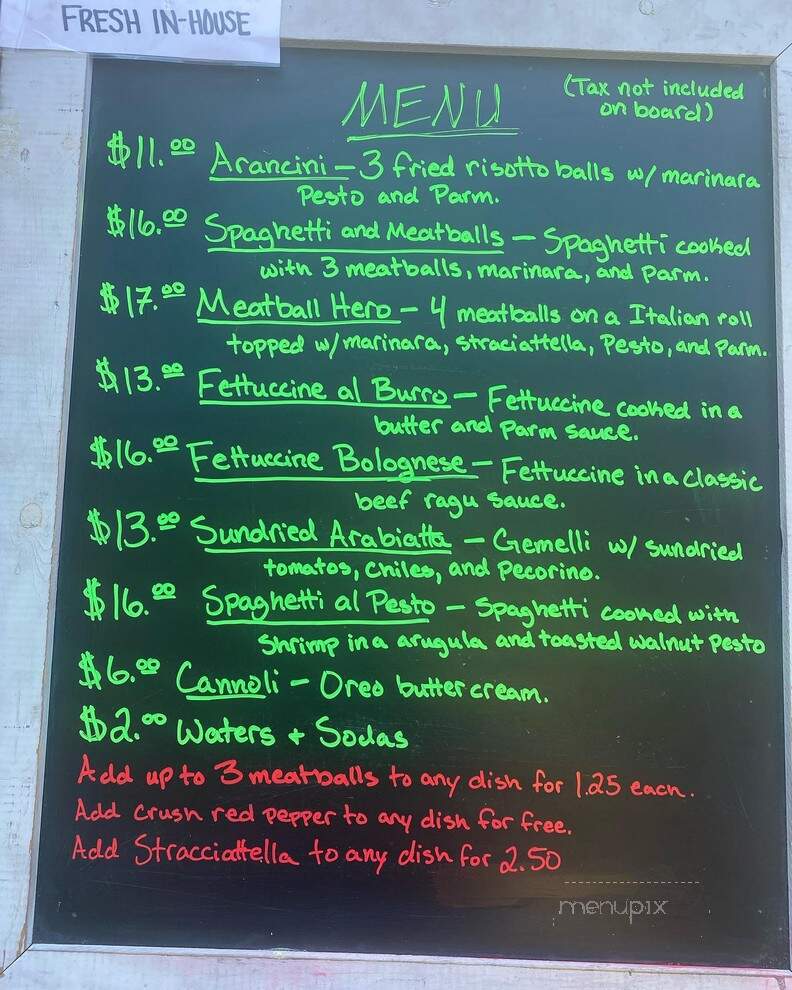 FRESH IN-HOUSE
MENU
(Tax not included
on board)
$11.00 Arancini - 3 fried risotto balls w/ marinara
Pesto and Parm.
$16.00 Spaghetti and Meatballs - Spaghetti cooked
with 3 meatballs, marinara, and Parm.
$17.00 Meatball Hero - 4 meatballs on a Italian roll
topped w/marinara, straciattella, Pesto, and Parm.
$13.00 Fettuccine al Burro - Fettuccine cooked in a
butter and Parm sauce.
$16.00 Fettuccine Bolognese - Fettuccine in a classic
beef ragu sauce.
$13.00 Sundried Arabiatta - Gemelli w/ sundried
tomatos, chiles, and Pecorino.
$16.00 Spaghetti al Pesto - Spaghetti cooked with
Shrimp in a arugula and toasted walnut Pesto
$6.00 Cannoli - Oreo buttercream.
$2.00 Waters + Sodas
Add up to 3 meatballs to any dish for 1.25 each.
Add crush red pepper to any dish for free.
Add Stracciattella to any dish for 2.50
menupix